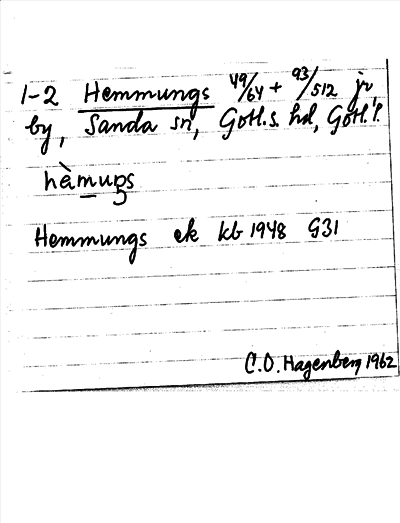 1-2 Hemmungs 49/64 + 93/512 jr
by, Sanda sn, Gotl.s. hd, Gotl. l.
hàmuŋs
Hemmungs ek kb 1948 G31
C.O. Hagenberg 1962